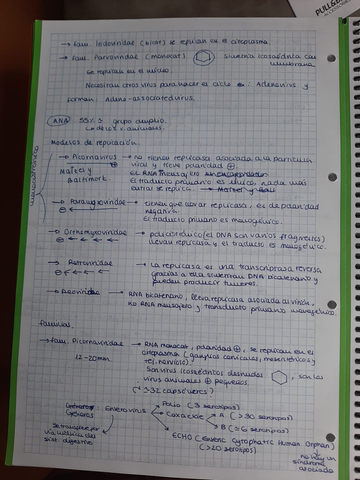 PULL&B
→ fam. Iridoviridae (bicat) se replican en el citoplasma.
→ fam. Parvoviridae (monocat) simetría icosaédrica sin
membrana
se replican en el núcleo.
Necesitan otros virus para hacer el ciclo : Adenovirus y
forman: Adeno-associatedvirus.
ARN 55% s grupo amplio.
→ de los v. animales.
Modelos de replicación:
→ Picornavirus → no tienen replicasa asociada a la partícula
⊕ viral y tiene polaridad ⊕
Matley y El RNA mensajero
Baltimore. El traducto primario es único, nada más
entrar se replica.
→ Paramyxoviridae → tienen que llevar replicasa, es de polaridad
⊖ negativa.
El traducto primario es monogénico.
→ Orthomyxoviridae → policistrónico (el DNA son varios fragmentos)
⊖ llevan replicasa y el traducto es monogénico.
→ Retroviridae → La replicasa es una transcriptasa reversa,
⊖ gracias a ella sintetizan DNA bicatenario y
pueden producir tumores.
→ Reoviridae → RNA bicatenario, lleva replicasa asociada al virión,
no RNA mensajero y transducto primario monogénico.
Familias.
→ fam. Picornaviridae → RNA monocat, polaridad ⊕, se replican en el
12-20mm citoplasma (ganglios cervicales, mesentéricos y
tej. nervioso)
Son virus icosaédricos desnudos , son los
virus animales ⊕ pequeños.
(≈ 32 capsómeros)
Géneros Enterovirus → Polio (3 serotipos)
→ Coxackie → A (>30 serotipos)
→ B (>6 serotipos)
Se transmite por
vía entérica del
sist. digestivo
ECHO (Enteric Cytopathic Human Orphan)
(>20 serotipos)
no hay un
síndrome
asociado